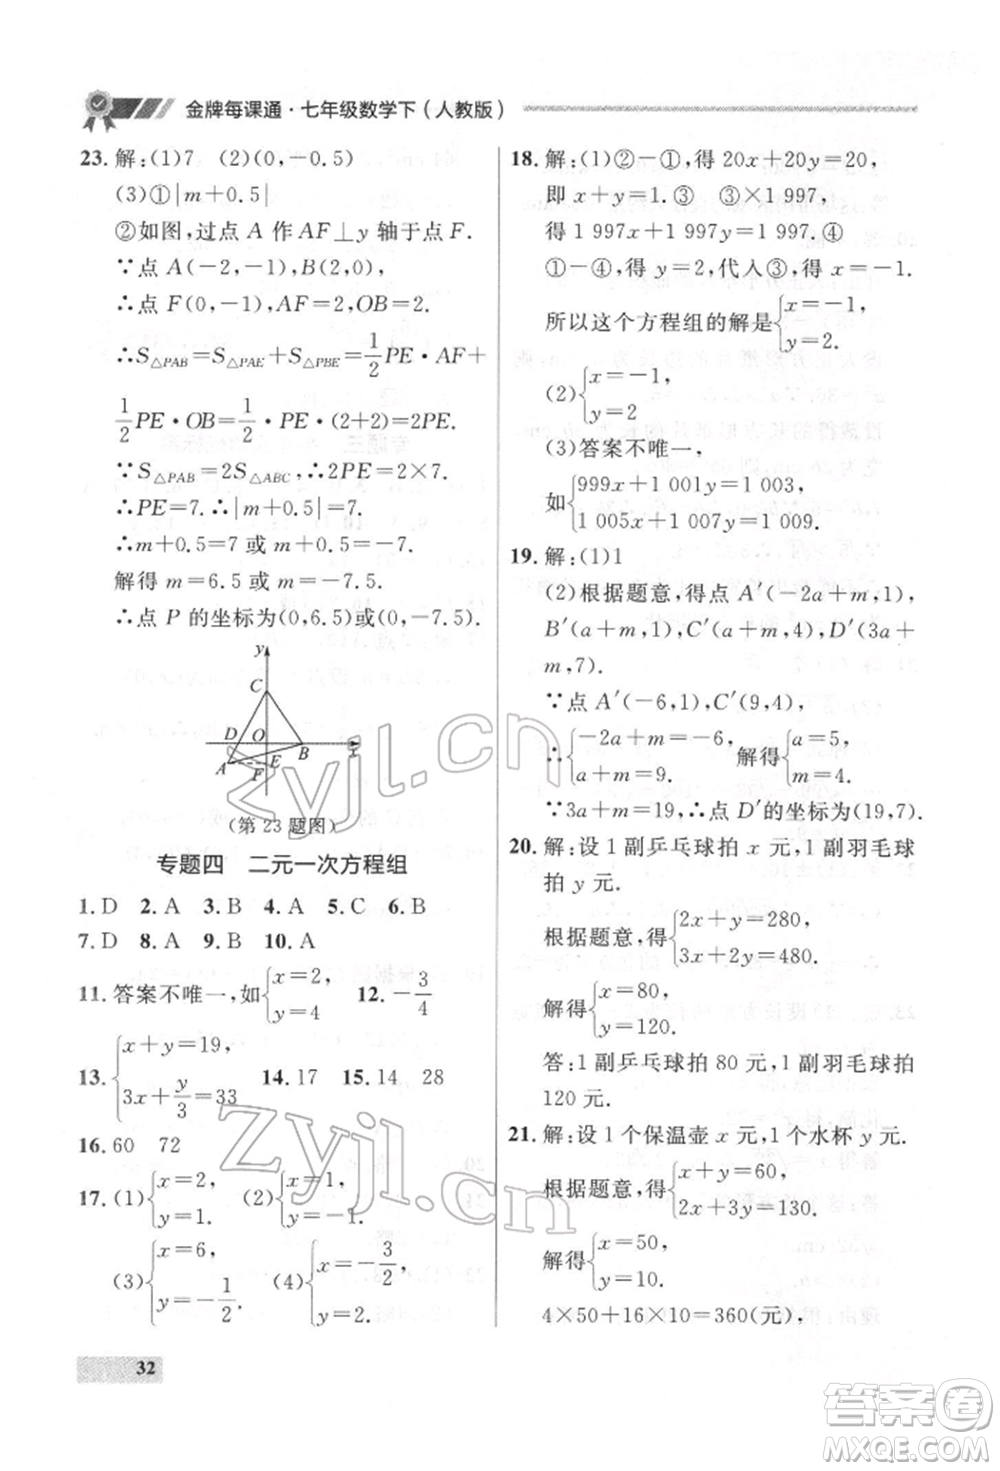 金牌每课通·七年级数学下(人教版)
23.解:(1)7 (2)(0,-0.5)
(3)①|m+0.5|
②如图,过点 A 作 AF⊥y 轴于点 F.
∵点 A(-2,-1),B(2,0),
∴点 F(0,-1),AF=2,OB=2.
∴S△PAB=S△PAE+S△PBE=1/2 PE·AF+
1/2 PE·OB=1/2·PE·(2+2)=2PE.
∵S△PAB=2S△ABC,∴2PE=2×7.
∴PE=7.∴|m+0.5|=7.
∴m+0.5=7 或 m+0.5=-7.
解得 m=6.5 或 m=-7.5.
∴点 P 的坐标为(0,6.5)或(0,-7.5).
y
C
D O B x
A F E
(第 23 题图)
专题四 二元一次方程组
1.D 2.A 3.B 4.A 5.C 6.B
7.D 8.A 9.B 10.A
11.答案不唯一,如{x=2, y=4 12.-3/4
13.{x+y=19, 3x+y/3=33 14.17 15.14 28
16.60 72
17.(1){x=2, y=1. (2){x=1, y=1.
(3){x=6, y=-1/2. (4){x=-3/2, y=2.
32
18.解:(1)②-①,得 20x+20y=20,
即 x+y=1.③ ③×1 997,
得 1 997x+1 997y=1 997.④
①-④,得 y=2,代入③,得 x=-1.
所以这个方程组的解是{x=-1, y=2.
(2){x=-1, y=2
(3)答案不唯一,
如{999x+1 001y=1 003, 1 005x+1 007y=1 009.
19.解:(1)1
(2)根据题意,得点 A′(-2a+m,1),
B′(a+m,1),C′(a+m,4),D′(3a+
m,7).
∵点 A′(-6,1),C′(9,4),
∴{-2a+m=-6, a+m=9. 解得{a=5, m=4.
∵3a+m=19,∴点 D′的坐标为(19,7).
20.解:设 1 副乒乓球拍 x 元,1 副羽毛球
拍 y 元.
根据题意,得{2x+y=280, 3x+2y=480.
解得{x=80, y=120.
答:1 副乒乓球拍 80 元,1 副羽毛球拍
120 元.
21.解:设 1 个保温壶 x 元,1 个水杯 y 元.
根据题意,得{x+y=60, 2x+3y=130.
解得{x=50, y=10.
4×50+16×10=360(元),
zyjl.cn
zyjl.cn
答案圈
MXQE.COM